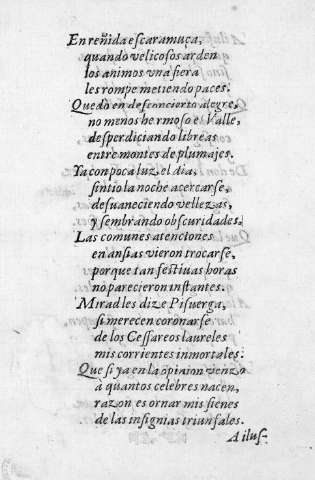 En reñida escaramuça,
quando velicosos arden
los animos vna fiera
les rompe metiendo paces.
Quedò en desconcierto alegre,
no menos hermoso el Valle,
desperdiciando libreas
entre montes de plumajes.
Ya con poca luz el dia,
sintio la noche acercarse,
desuaneciendo vellezas,
y sembrando obscuridades.
Las comunes atenciones
en ansias vieron trocarse,
porque tan festiuas horas
no parecieron instantes.
Miradles dize Pisuerga,
si merecen coronarse
de los Cessareos laureles
mis corrientes inmortales:
Que si ya en la opinion venzo
à quantos celebres nacen,
razon es ornar mis sienes
de las insignias triunfales.
A ilus-